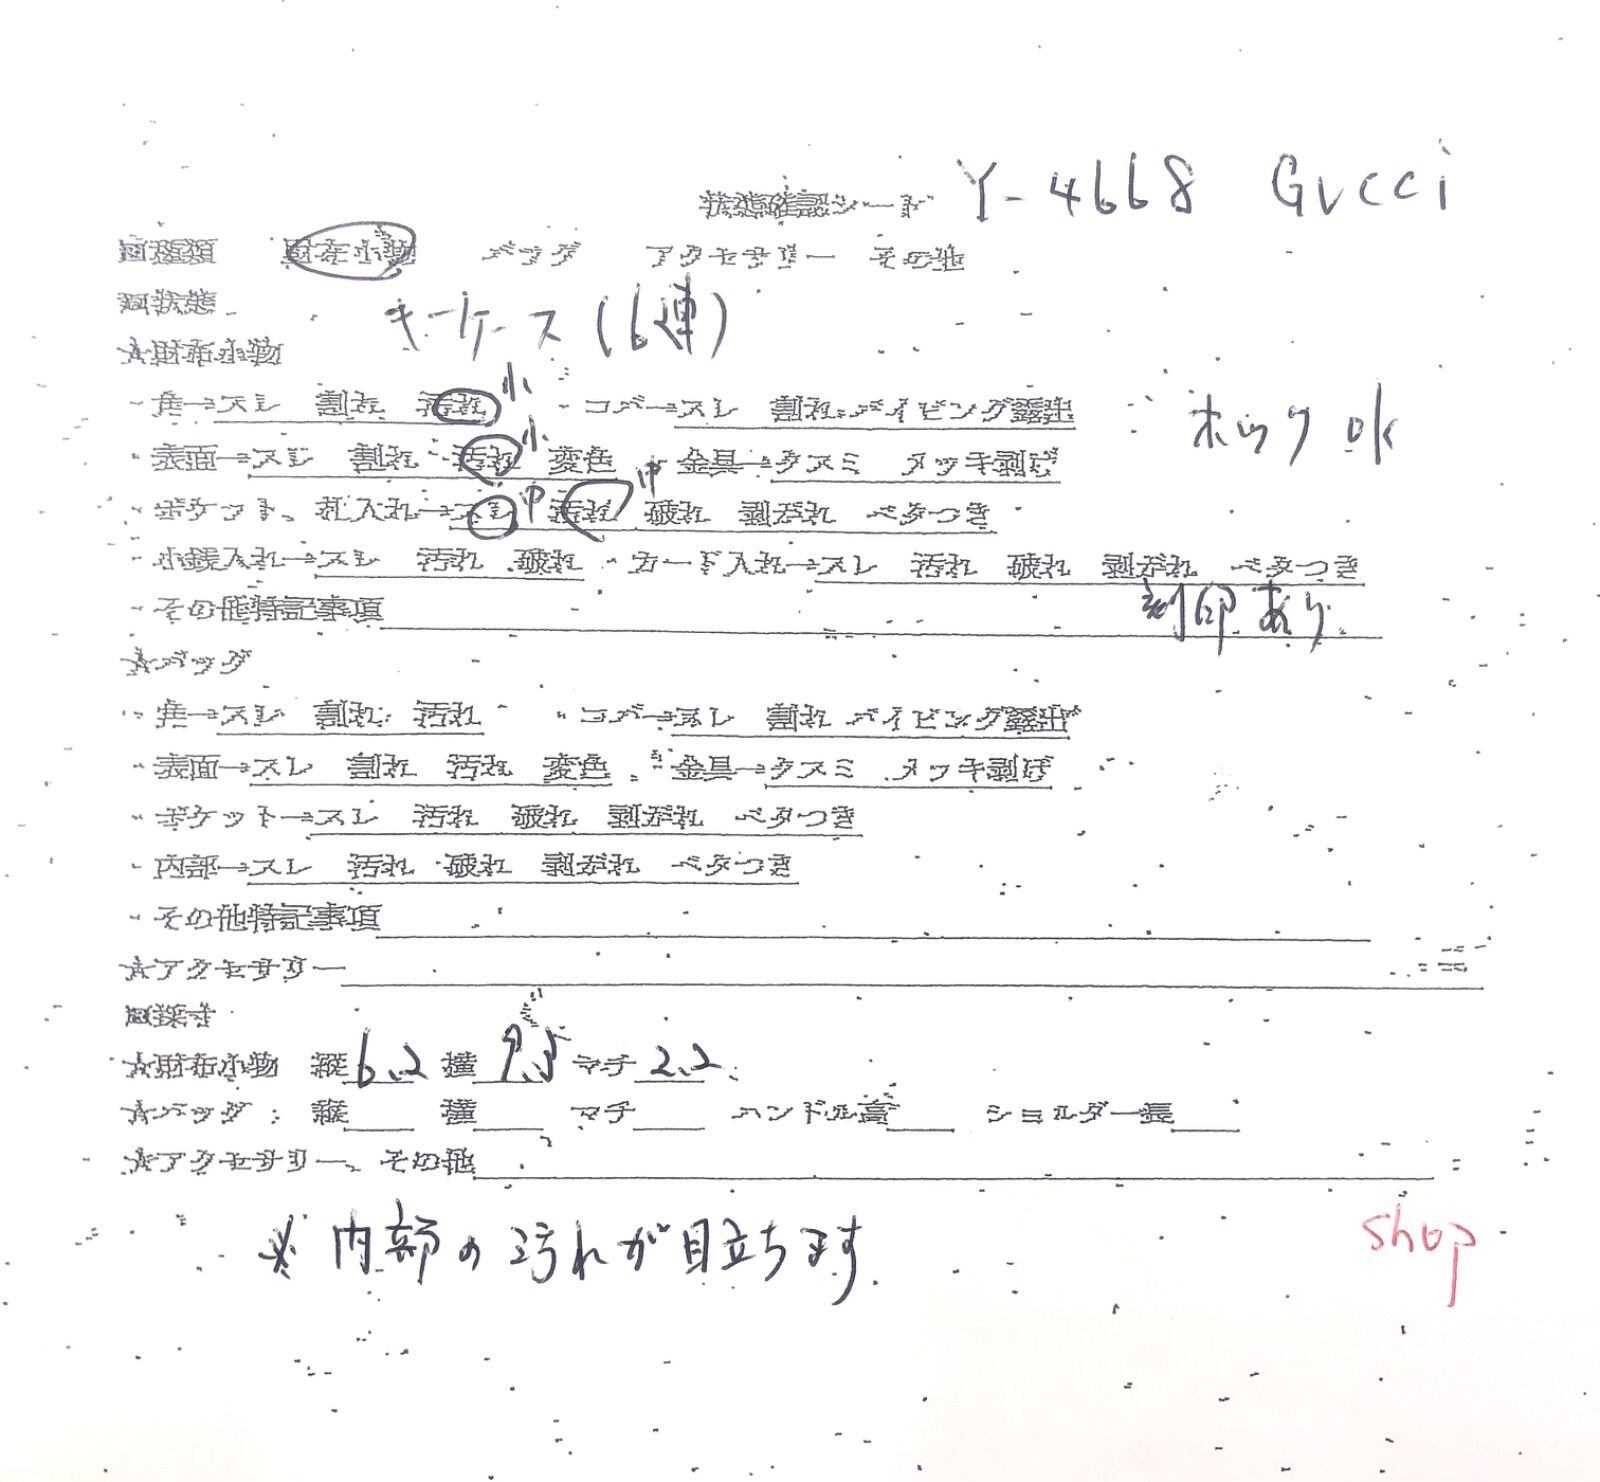 状態確認シート Y-4668 Gucci
□種類 財布小物 バッグ アクセサリー その他
□状態 キーケース(6連)
☆財布小物
・角→スレ 割れ 汚れ 小 ・コバ→スレ 割れ パイピング露出 ホック ok
・表面→スレ 割れ 汚れ 小 変色 ・金具→クスミ メッキ剥げ
・ポケット、札入れ→スレ 中 汚れ 中 破れ 剥がれ ベタつき
・小銭入れ→スレ 汚れ 破れ ・カード入れ→スレ 汚れ 破れ 剥がれ ベタつき
・その他特記事項 刻印あり
☆バッグ
・角→スレ 割れ 汚れ ・コバ→スレ 割れ パイピング露出
・表面→スレ 割れ 汚れ 変色 ・金具→クスミ メッキ剥げ
・ポケット→スレ 汚れ 破れ 剥がれ ベタつき
・内部→スレ 汚れ 破れ 剥がれ ベタつき
・その他特記事項
☆アクセサリー
□採寸
☆財布小物 縦6.2 横 マチ2.2
☆バッグ: 縦 横 マチ ハンドル高 ショルダー長
☆アクセサリー、その他
※内部の汚れが目立ちます
shop